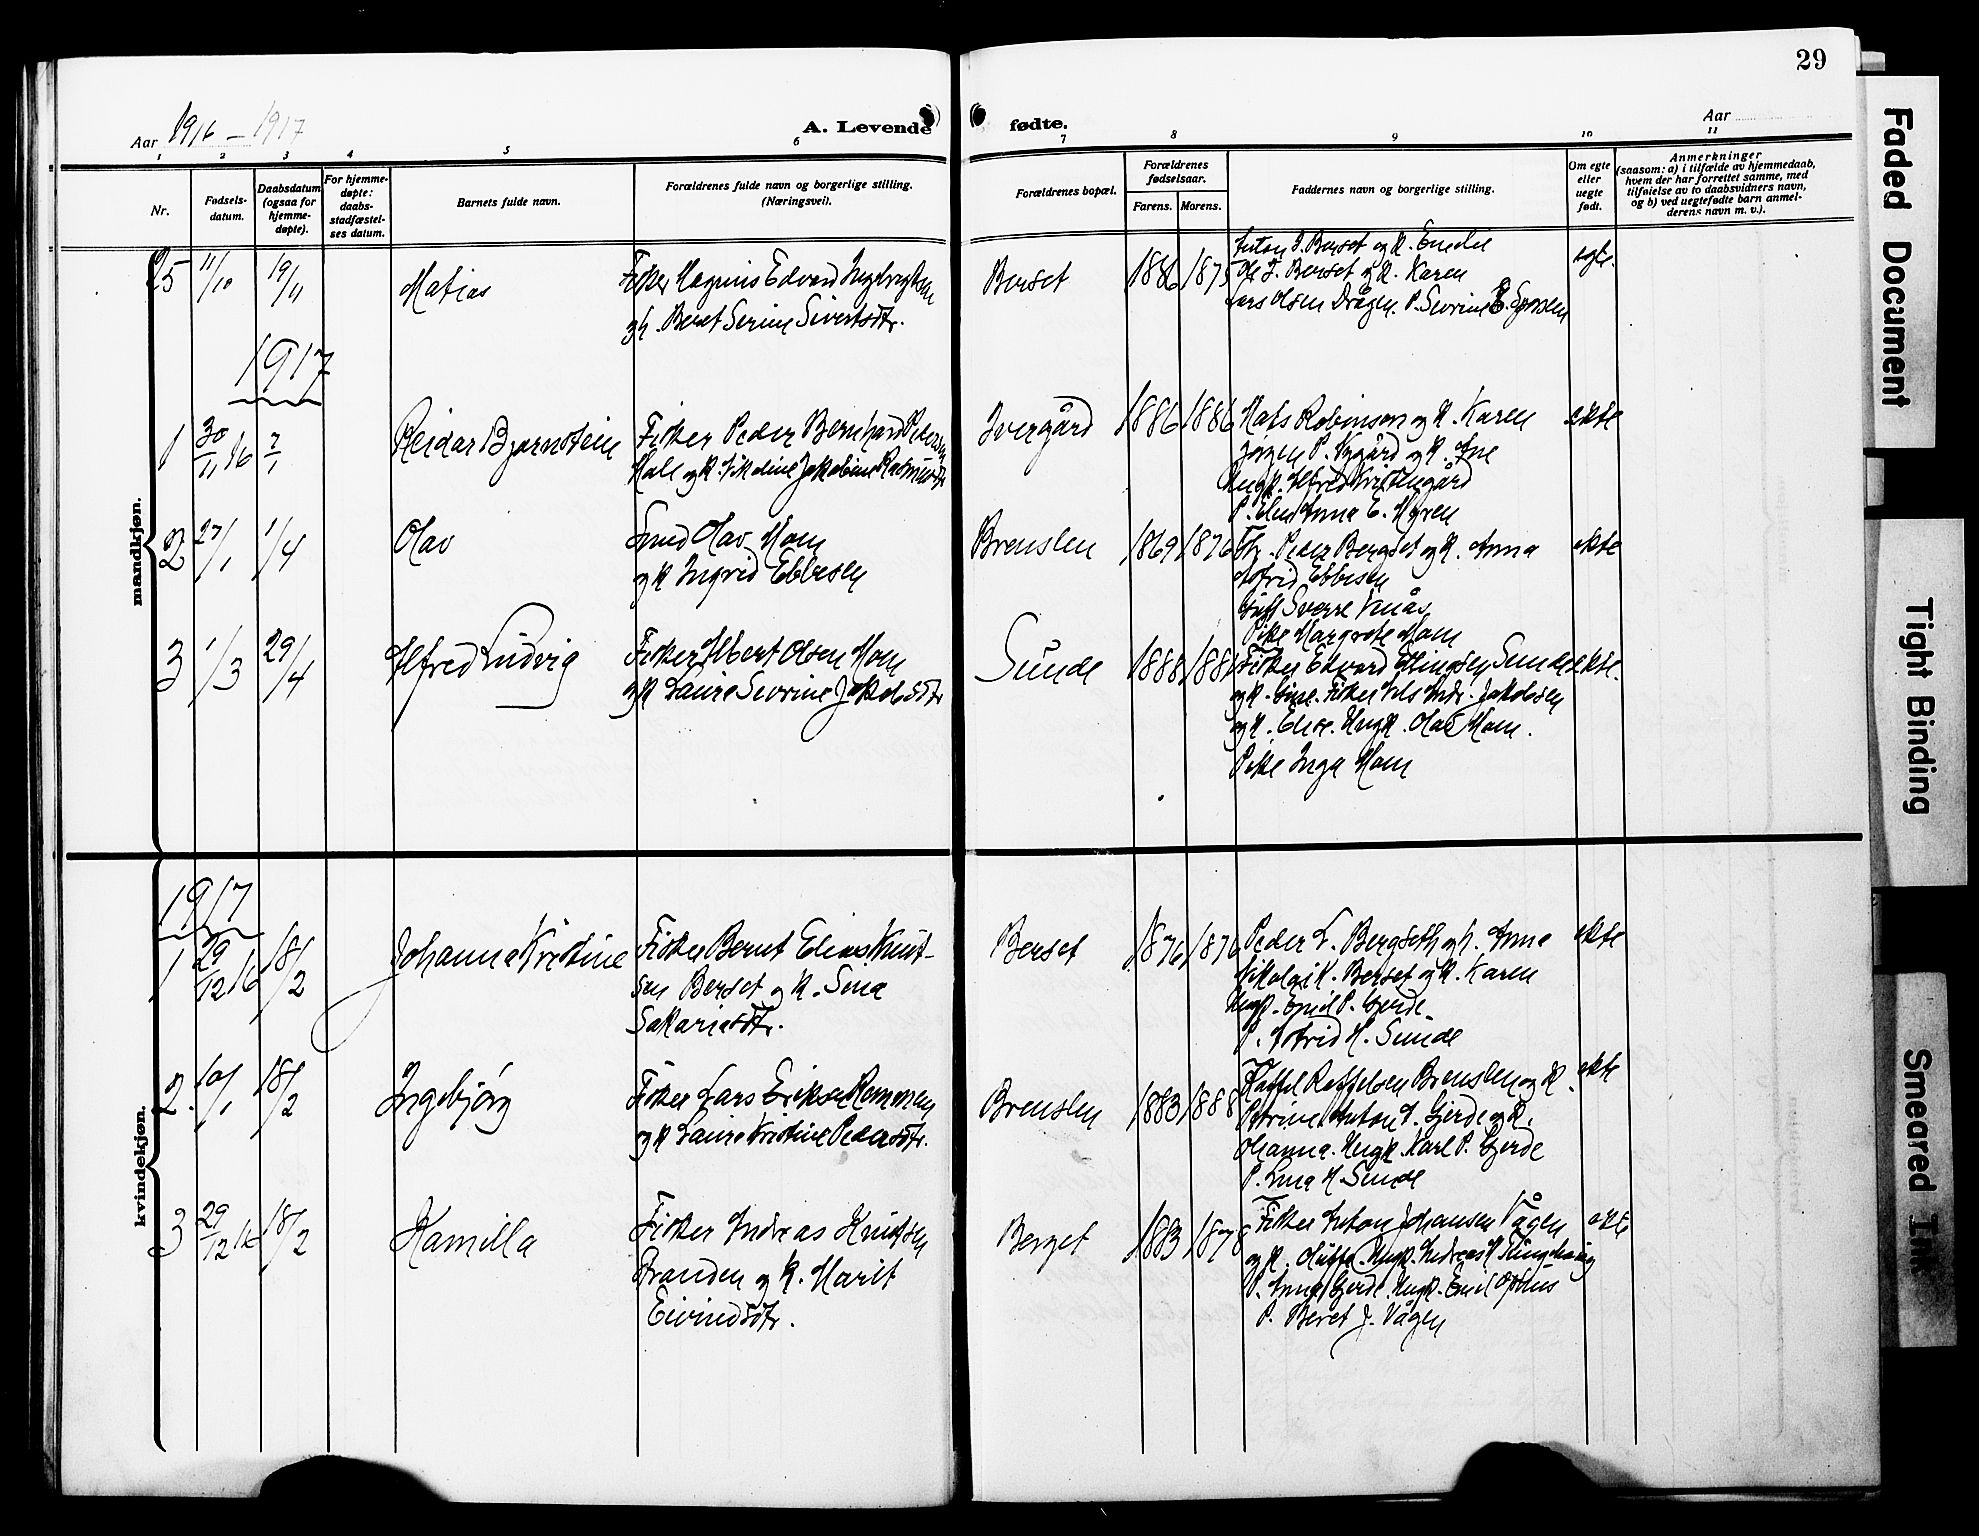 29
Aar 1916 – 1917
A. Levende fødte.
Aar
1 2 3 4 5 6 7 8 9 10 11
Nr.
Fødsels-
datum.
Daabsdatum
(ogsaa for
hjemme-
døpte).
For hjemme-
døpte:
daabs-
stadfæstel-
ses datum.
Barnets fulde navn.
Forældrenes fulde navn og borgerlige stilling.
(Næringsvei).
Forældrenes bopæl.
Forældrenes
fødselsaar.
Farens. Morens.
Faddernes navn og borgerlige stilling.
Om egte
eller
uegte
født.
Anmerkninger
(saasom: a) i tilfælde av hjemmedaab,
hvem der har forrettet samme, med
tilføielse av to daabsvidners navn,
og b) ved uegtefødte barn anmel-
derens navn m. v.).
mandkjøn.
25 11/10 19/11 Matias
Fisker Magnus Edvard Ingebrigtsen
og h. Beret Serine Sivertsdtr.
Berset 1886 1875
Anton J. Berset og k. Emelie
Ole J. Berset og k. Karen
Lars Olsen Drågen. P. Sevrine
egte.
1917
1 30/11 16 7/1 Reidar Bjarnstein
Fisker Peder Bernhard Pedersen
Male og k. Nikoline Jakobine Rasmusdtr
Ivergård 1886 1886
Mats Robinson og k. Karen
Jørgen P. Nygård og k. Ane
Ungk. Alfred Kristengård
P. Anna E. Myren
ekte
2 27/1 1/4 Olav
Smed Olav Hom
og k Ingrid Ebbesen
Brenslen 1869 1876
Peder Bergset og k. Anna
Astrid Ebbesen
Sverre Knås
Pike Margrete Hom
ekte
3 1/3 29/4 Alfred Ludvig
Fisker Albert Olsen Hom
og k Laura Sevrine Jakobsdtr
Sunde 1888 1886
Fisker Edvard Ellingsen Sunde
og k. Gine. Fisker Nils Andr. Jakobsen
og k. Elise. Ungk. Olav Hom.
Pike Inga Hom
ekte.
kvindekjøn.
1917
1 29/12 16 18/2 Johanna Kristine
Fisker Bernt Elias Knut-
sen Berset og k. Sina
Sakariasdtr.
Berset 1876 1876
Peder L. Bergseth og h. Anna
Nikolai K. Berset og k. Karen
Ungk. Emil P. Gjerde
P. Astrid H. Sunde
ekte
2. 10/1 18/2 Ingebjørg
Fisker Lars Eriksen Hemmen
og k Laura Kristine Pedersdtr.
Brenslen 1883 1888
Raffel Raffelsen Brenslen og k.
Petrine. Anton A. Gjerde og k.
Johanna. Ungk. Karl P. Gjerde
P. Anna H Sunde
ekte
3 29/12 16 18/2 Kamilla
Fisker Andreas Knutsen
Stranden og k. Marit
Eivindsdtr.
Berget 1883 1878
Fisker Anton Johansen Vågen
og k. Ungk. Andreas
P. Anna Gjerde. Ungk. Emil
P. Beret J. Vågen
ekte
Faded Document
Tight Binding
Smeared Ink